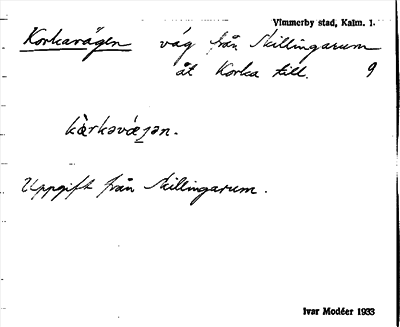 Vimmerby stad, Kalm. l.
Korkavägen väg från Skillingarum
åt Korka till. 9
kàrkəvǽjən.
Uppgift från Skillingarum.
Ivar Modéer 1933